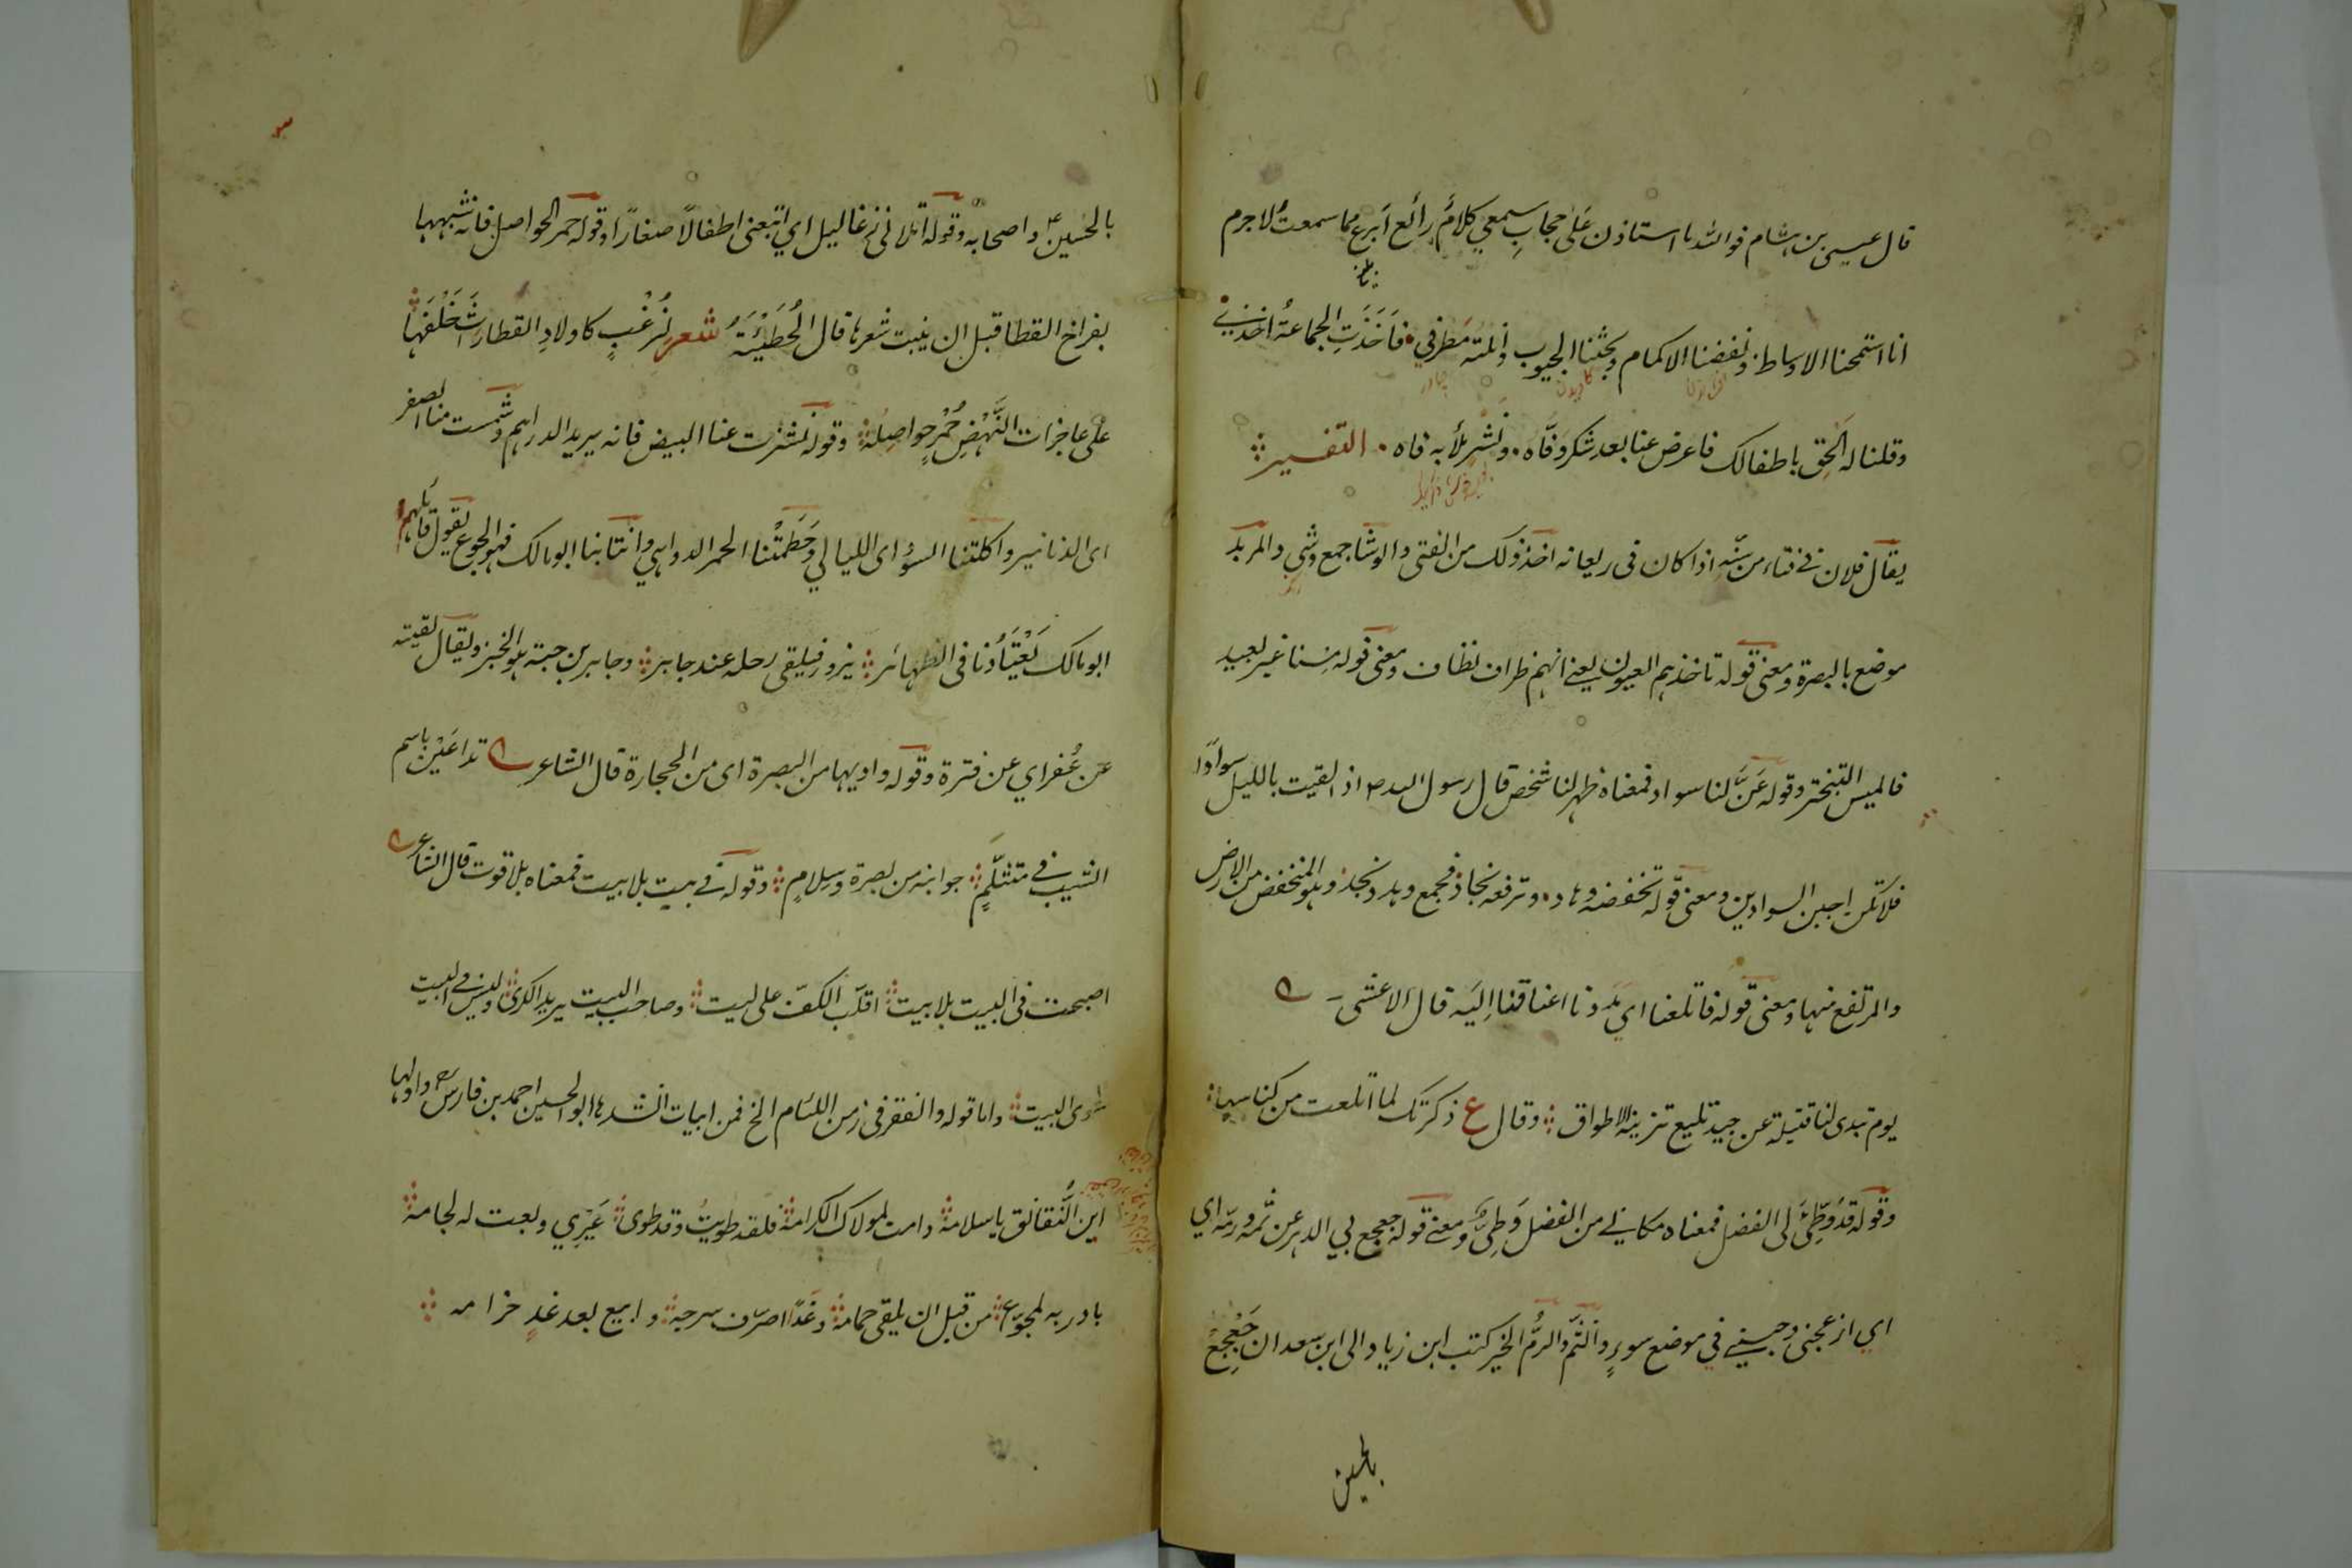 قال عيسى بن هشام فوالله ما استاذن عَلىٰ حجابِ سمعي كلامٌ رائع اَبرع مما سمعتُ لاجرم
انا استمحنا الاوساط ونفضنا الاكمام وبحثنا الجيوب وانلته مَطرفي فاَخَذَتِ الجماعة اخذني
وقلنا له اَلحِق باطفالك فاعرض عنا بعد شكر وَفّاه ونَشْرٍ ملأ به فاه التفسير
يقال فلان في فتاء من سنّه اذا كان في ريعانه اخذ ذلك من الفتى والوشا جمع وشي والمربد
موضع بالبصرة ومعنى قوله تاخذهم العيون يعني انهم ظراف نظاف ومعنى قوله مسنا غير بعيد
فالميس التبختر وقوله عَنَّ لنا سواد فمعناه ظهر لنا شخص قال رسول الله ص اذا لقيت بالليل سوادًا
فلا تكن اجبن السوادين ومعنى قوله تخفضه وهاد وترفعه نجاد فجمع وهد ونجد وهو المنخفض من الارض
والمرتفع منها ومعنى قوله فاتلعنا اي مددنا اعناقنا اليه قال الاعشى
يوم تبدى لنا قتيلة عن جيد تليع تزينه الاطواق وقال ع ذكرتك لما اتلعت من كناسها
وقوله قد وُطِّئَ لى الفضل فمعناه مكاني من الفضل وَطِيٌّ ومعنى قوله جعجع بي الدهر عن ثمه ورمه اي
اي ازعجنى وحبسني في موضع سوءٍ والثّم والرُمّ الخير كتب ابن زياد الى ابن سعد ان جَعْجِعْ
بالحسين
بالحسين ع واصحابه وقوله اتلانى زغاليل اي اتبعنى اطفالاً صغارًا وقوله حمر الحواصل فانه شبهها
بفراخ القطا قبل ان ينبت شعرها قال الحُطَيْئَةُ شعر لزُغْبٍ كاولادِ القطا راثَ خَلْفَها
على عاجزات النَّهْضِ حُمْرٍ حواصِلُهْ وقوله نشزت عنا البيض فانه يريد الدراهم وشمست منا الصفر
اى الدنانير واكلتنا السوُد اى الليالي وَحَطَمَتْنا الحمر الدواهي وانتابنا ابومالك فهو الجوع يقول قائلهم
ابومالك يَعْتَادُنا فى الظهائر يزور فيلقى رحله عند جابر وجابر بن حبة هو الخبز ويقال لقيته
عن عُفر اي عن فترة وقوله واديها من البصرة اى من الحجارة قال الشاعر تداعَيْن باسم
الشيب في متثلّمٍ جوانبه من بصرة وسِلامٍ وقوله في بيت بلا بيت فمعناه بلا قوت قال الشاعر
اصبحت فى البيت بلا بيت اقلّب الكفّ على ليت وصاحب البيت يريد الكرى وليس في البيت
سوى البيت واما قوله والفقر فى زمن اللئام الخ فمن ابيات انشدها ابو الحسين احمد بن فارس واولها
اين النَّقانق يا سلامة دامت لمولاك الكرامة فلقد طويتُ وقد طوى عَيْرِي وبعت له لجامة
بادر به لمجوّع من قبل ان يلقى حمامه وغَدًا اصرّف سرجه وابيع بعد غدٍ حزامه